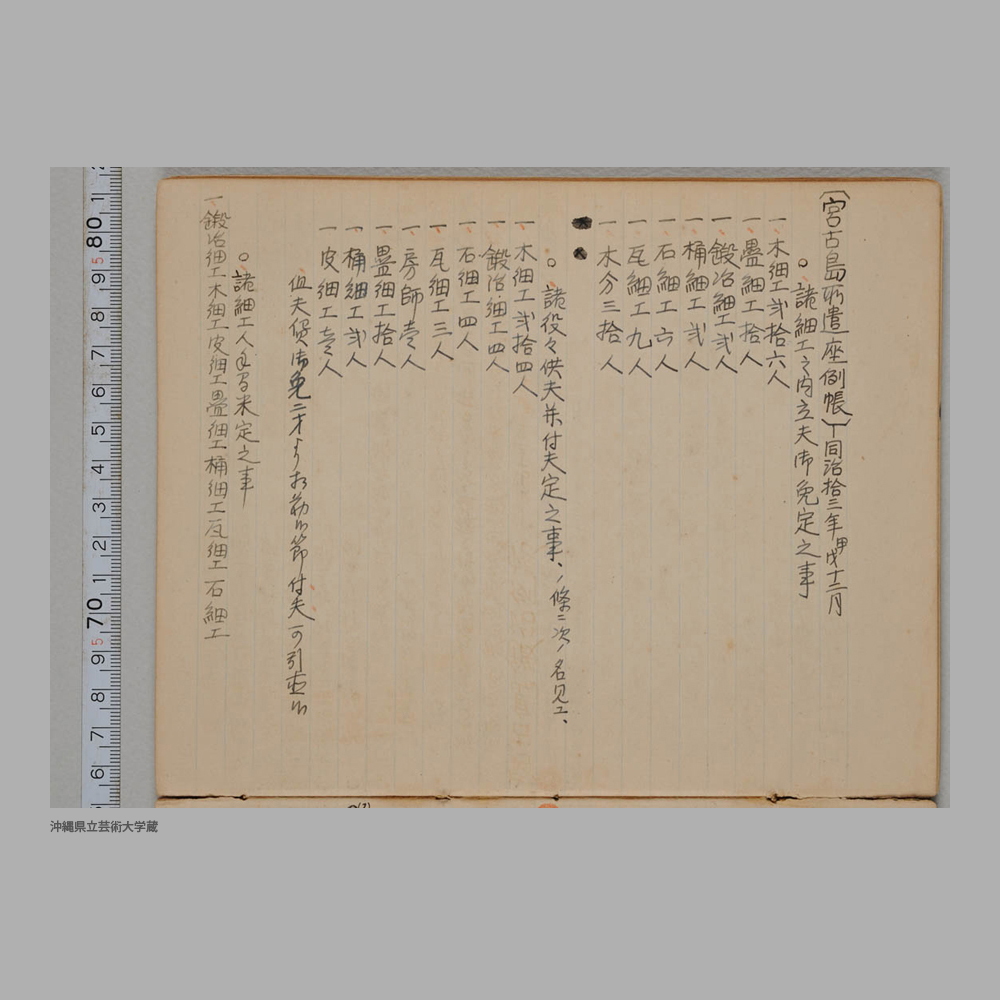 〔宮古島所遣座例帳〕同治拾三年甲戌十二月
○諸細工之内立夫御免定之事
一木細工弐拾六人
一畳細工拾人
一鍛冶細工弐人
一桶細工弐人
一石細工六人
一瓦細工九人
一木分三拾人
○諸役々供夫并付夫定之事、ノ條ニ次ノ名見エ、
一木細工弐拾四人
一鍛冶細工四人
一石細工四人
一瓦細工三人
一房師壱人
一畳細工拾人
一桶細工弐人
一皮細工壱人
但夫賃御免ニ才より相勤候節付夫可引直候
○諸細工人手間米定之事
一鍛冶細工木細工皮細工畳細工桶細工瓦細工石細工
沖縄県立芸術大学蔵